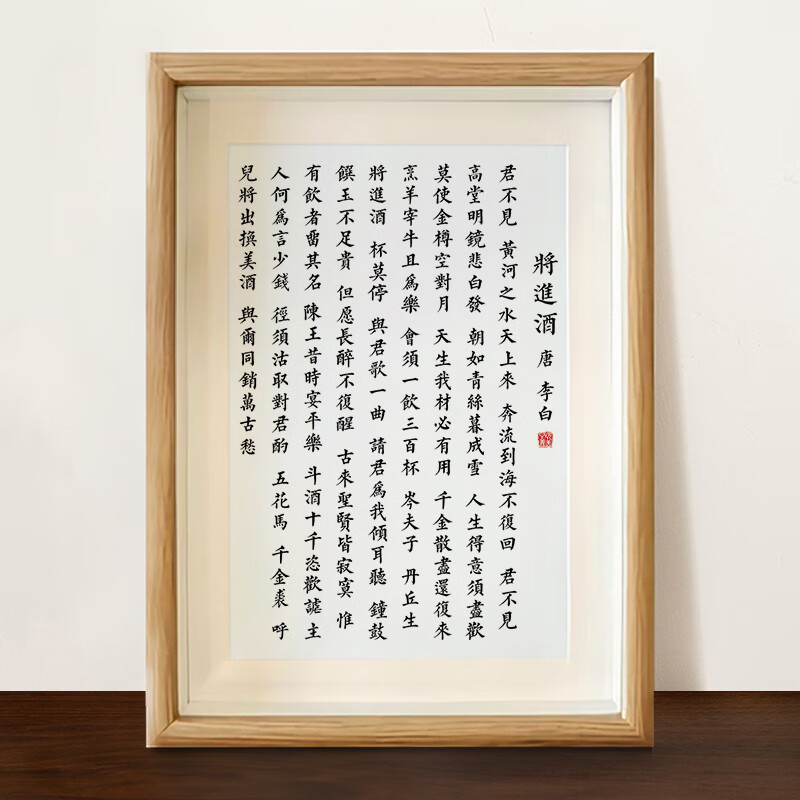 將進酒 唐 李白
君不見 黃河之水天上來 奔流到海不復回 君不見
高堂明鏡悲白發 朝如青絲暮成雪 人生得意須盡歡
莫使金樽空對月 天生我材必有用 千金散盡還復來
烹羊宰牛且爲樂 會須一飲三百杯 岑夫子 丹丘生
將進酒 杯莫停 與君歌一曲 請君爲我傾耳聽 鐘鼓
饌玉不足貴 但愿長醉不復醒 古來聖賢皆寂寞 惟
有飲者留其名 陳王昔時宴平樂 斗酒十千恣歡謔 主
人何爲言少錢 徑須沽取對君酌 五花馬 千金裘 呼
兒將出換美酒 與爾同銷萬古愁